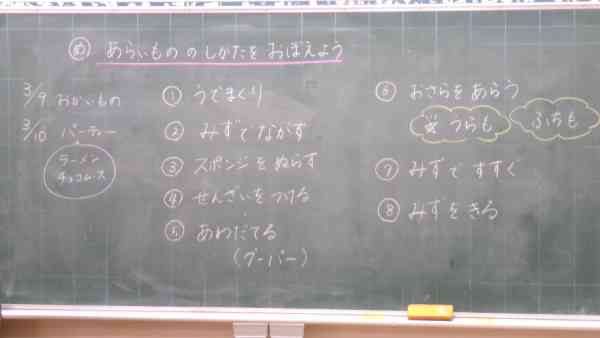 め あらいもの のしかたを おぼえよう
3/9 おかいもの
3/10 パーティー
ラーメン
チョコムース
① うでまくり
② みずで ながす
③ スポンジを ぬらす
④ せんざいを つける
⑤ あわだてる
(グーパー)
⑥ おさらを あらう
うらも
ふちも
⑦ みずで すすぐ
⑧ みずを きる